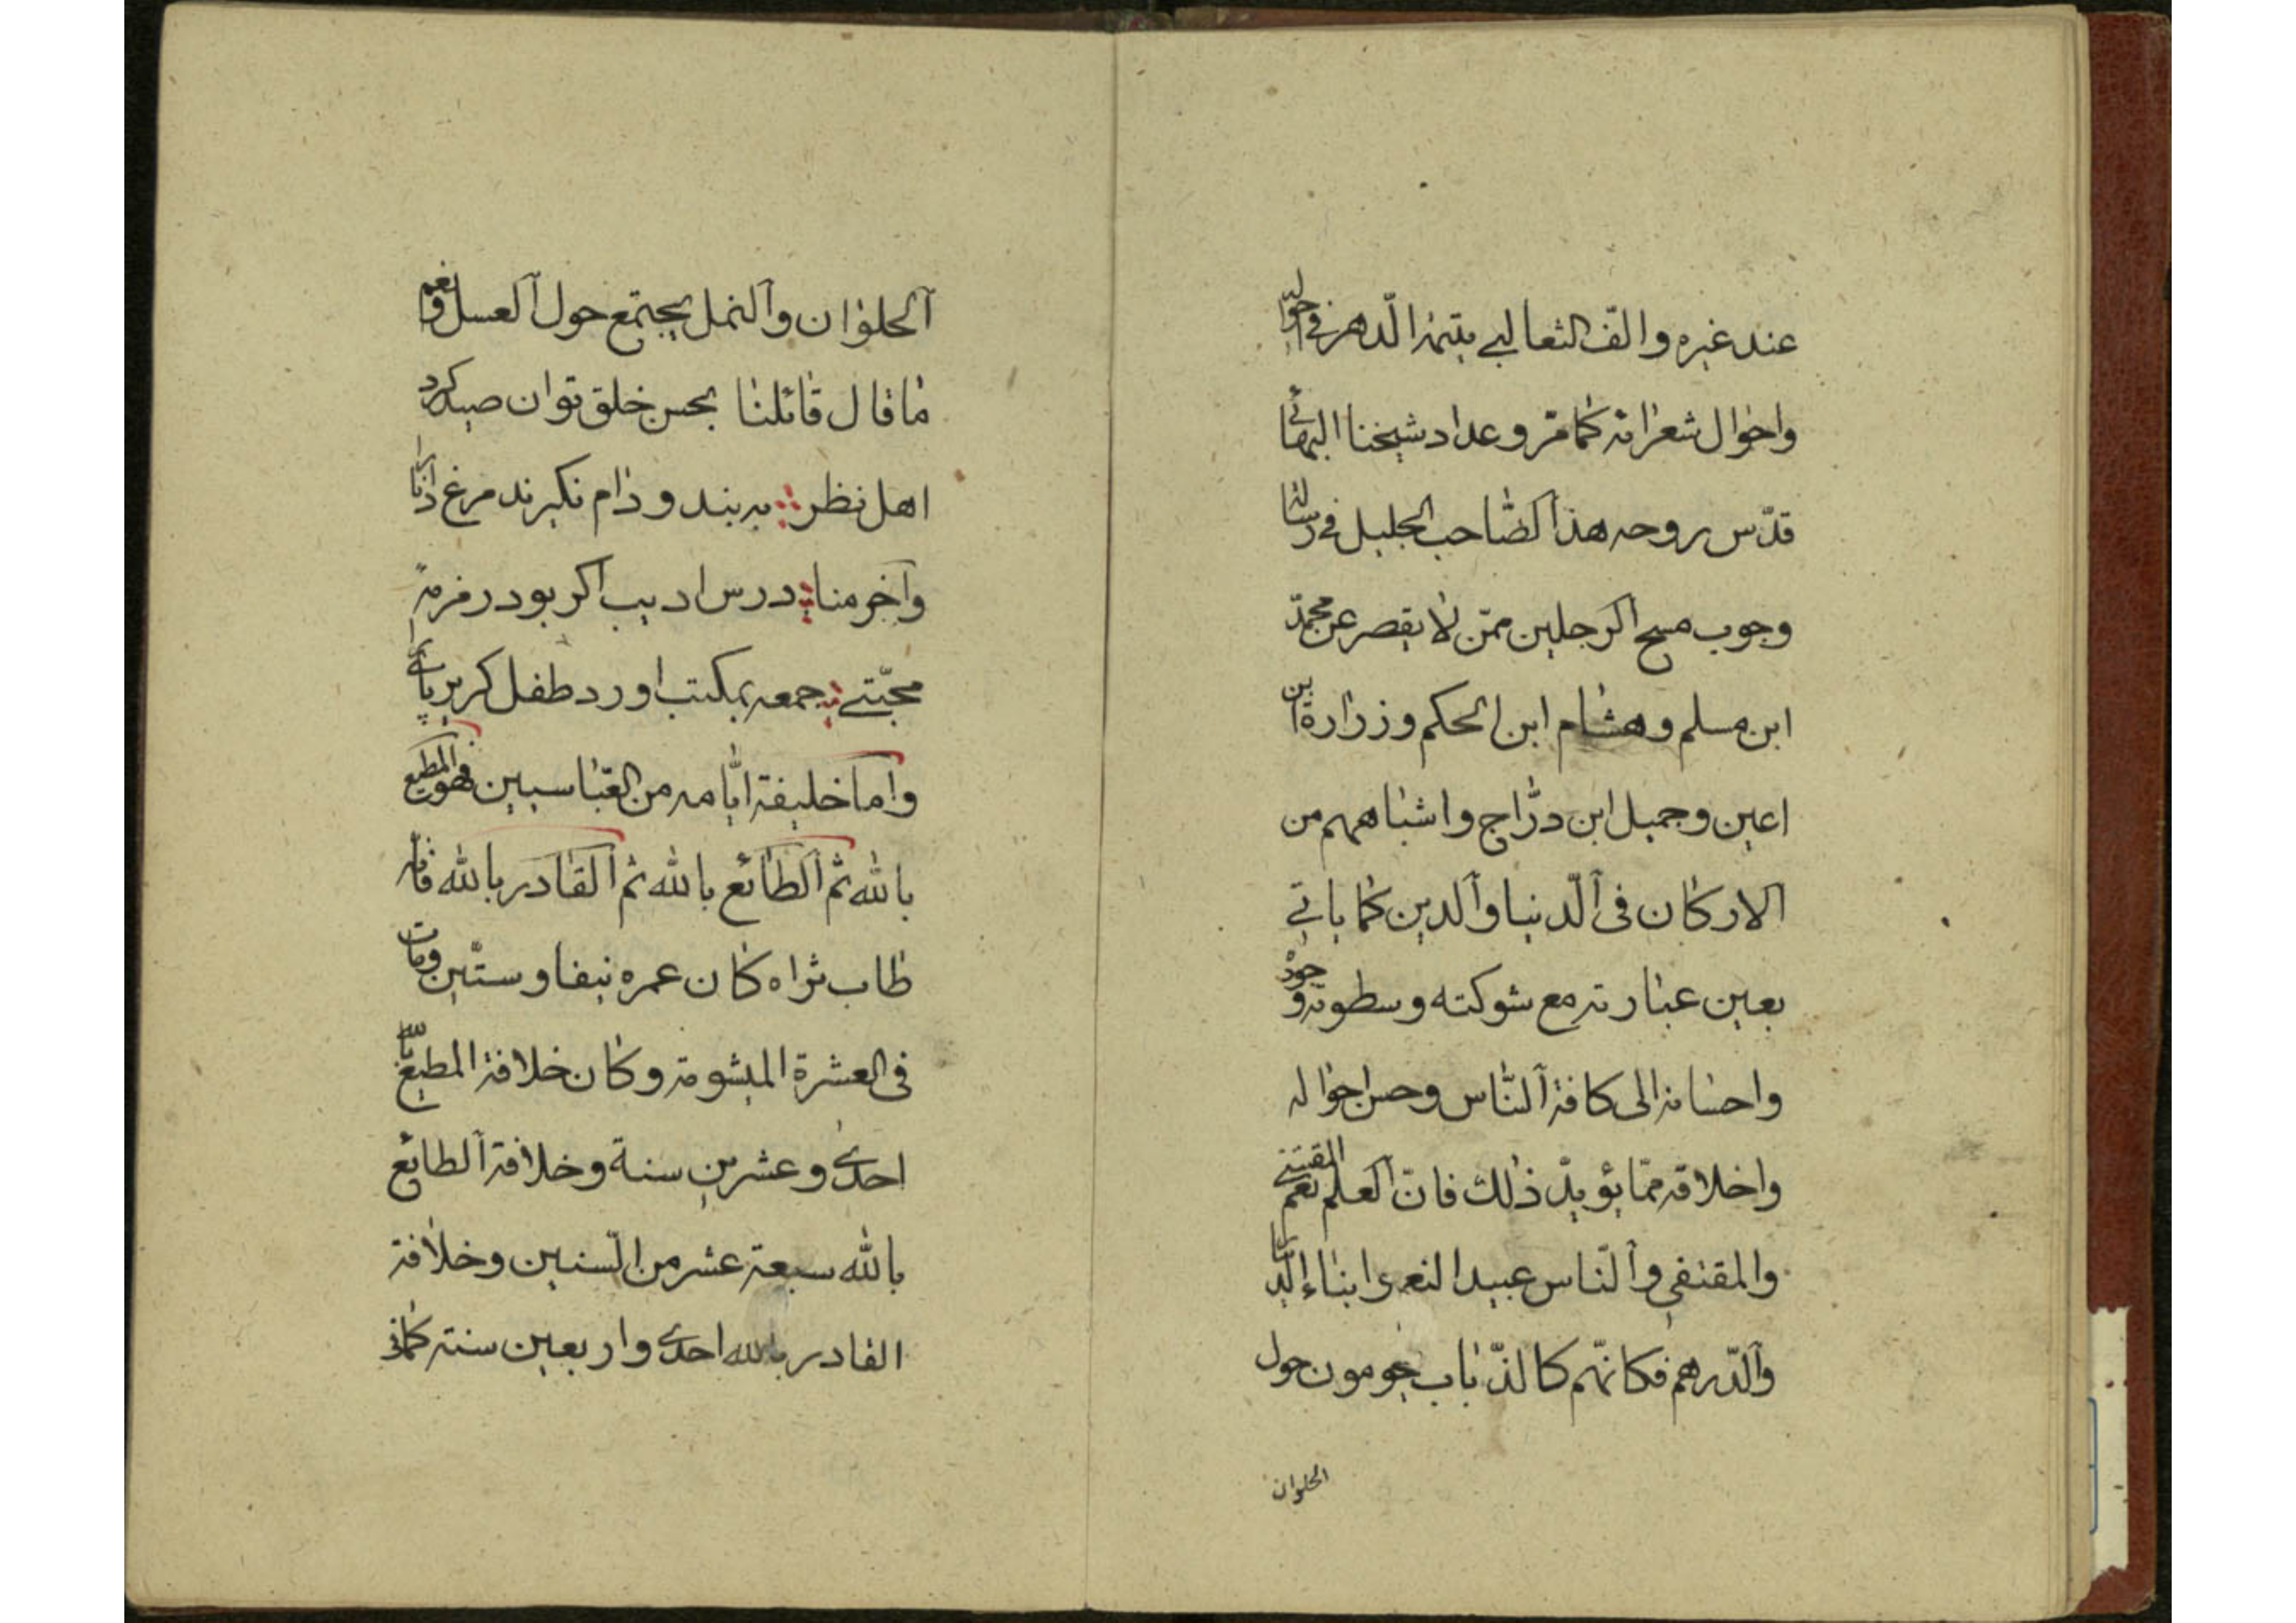 عند غيره والّف الثعالبي يتيمة الدّهر في احواله
واحوال شعرائه كما مرّ وعداد شيخنا البهائي
قدّس روحه هذا الصّاحب الجليل في رسالة
وجوب مسح الرجلين ممّن لا يقصر عن محمّد
ابن مسلم وهشام ابن الحكم وزرارة ابن
اعين وجميل ابن درّاج واشباههم من
الاركان في الدّنيا والدين كما ياتي
بعين عبارته مع شوكته وسطوته وجوده
واحسانه الى كافة النّاس وحسن احواله
واخلاقه ممّا يؤيّد ذلك فانّ العلم نعم المقتنى
والمقتفي والنّاس عبيد النعم وابناء الدّينار
والدّرهم فكانّهم كالذّباب يحومون حول
الحلوان
الحلوان والنمل يجتمع حول العسل ونعم
ما قال قائلنا بحسن خلق توان صيد كرد
اهل نظر به بند ودام نكيرند مرغ دانا را
وآخر منا درس اديب اكر بود زمزمهٔ
محبّتي جمعه بمكتب اورد طفل كريز پاي را
واما خليفة ايّامه من العبّاسيين فهو المطيع
بالله ثم الطائع بالله ثم القادر بالله فانه
طاب ثراه كان عمره نيفا وستّين ومات
في العشرة الميشومة وكان خلافة المطيع بالله
احدى وعشرين سنة وخلافة الطايع
بالله سبعة عشر من السّنين وخلافة
القادر بالله احدى واربعين سنة كما في